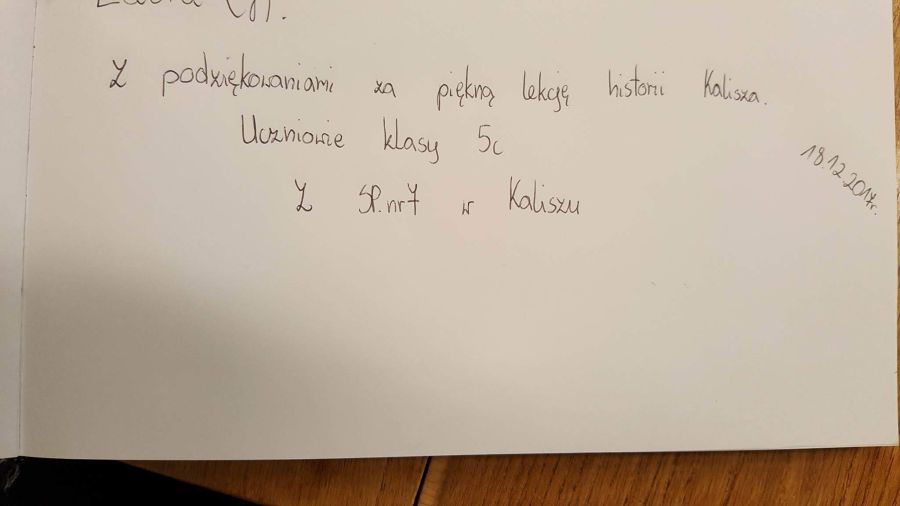 Z podziękowaniami za piękną lekcję historii Kalisza.
Uczniowie klasy 5c
Z SP.nr7 w Kaliszu
18.12.2017r.